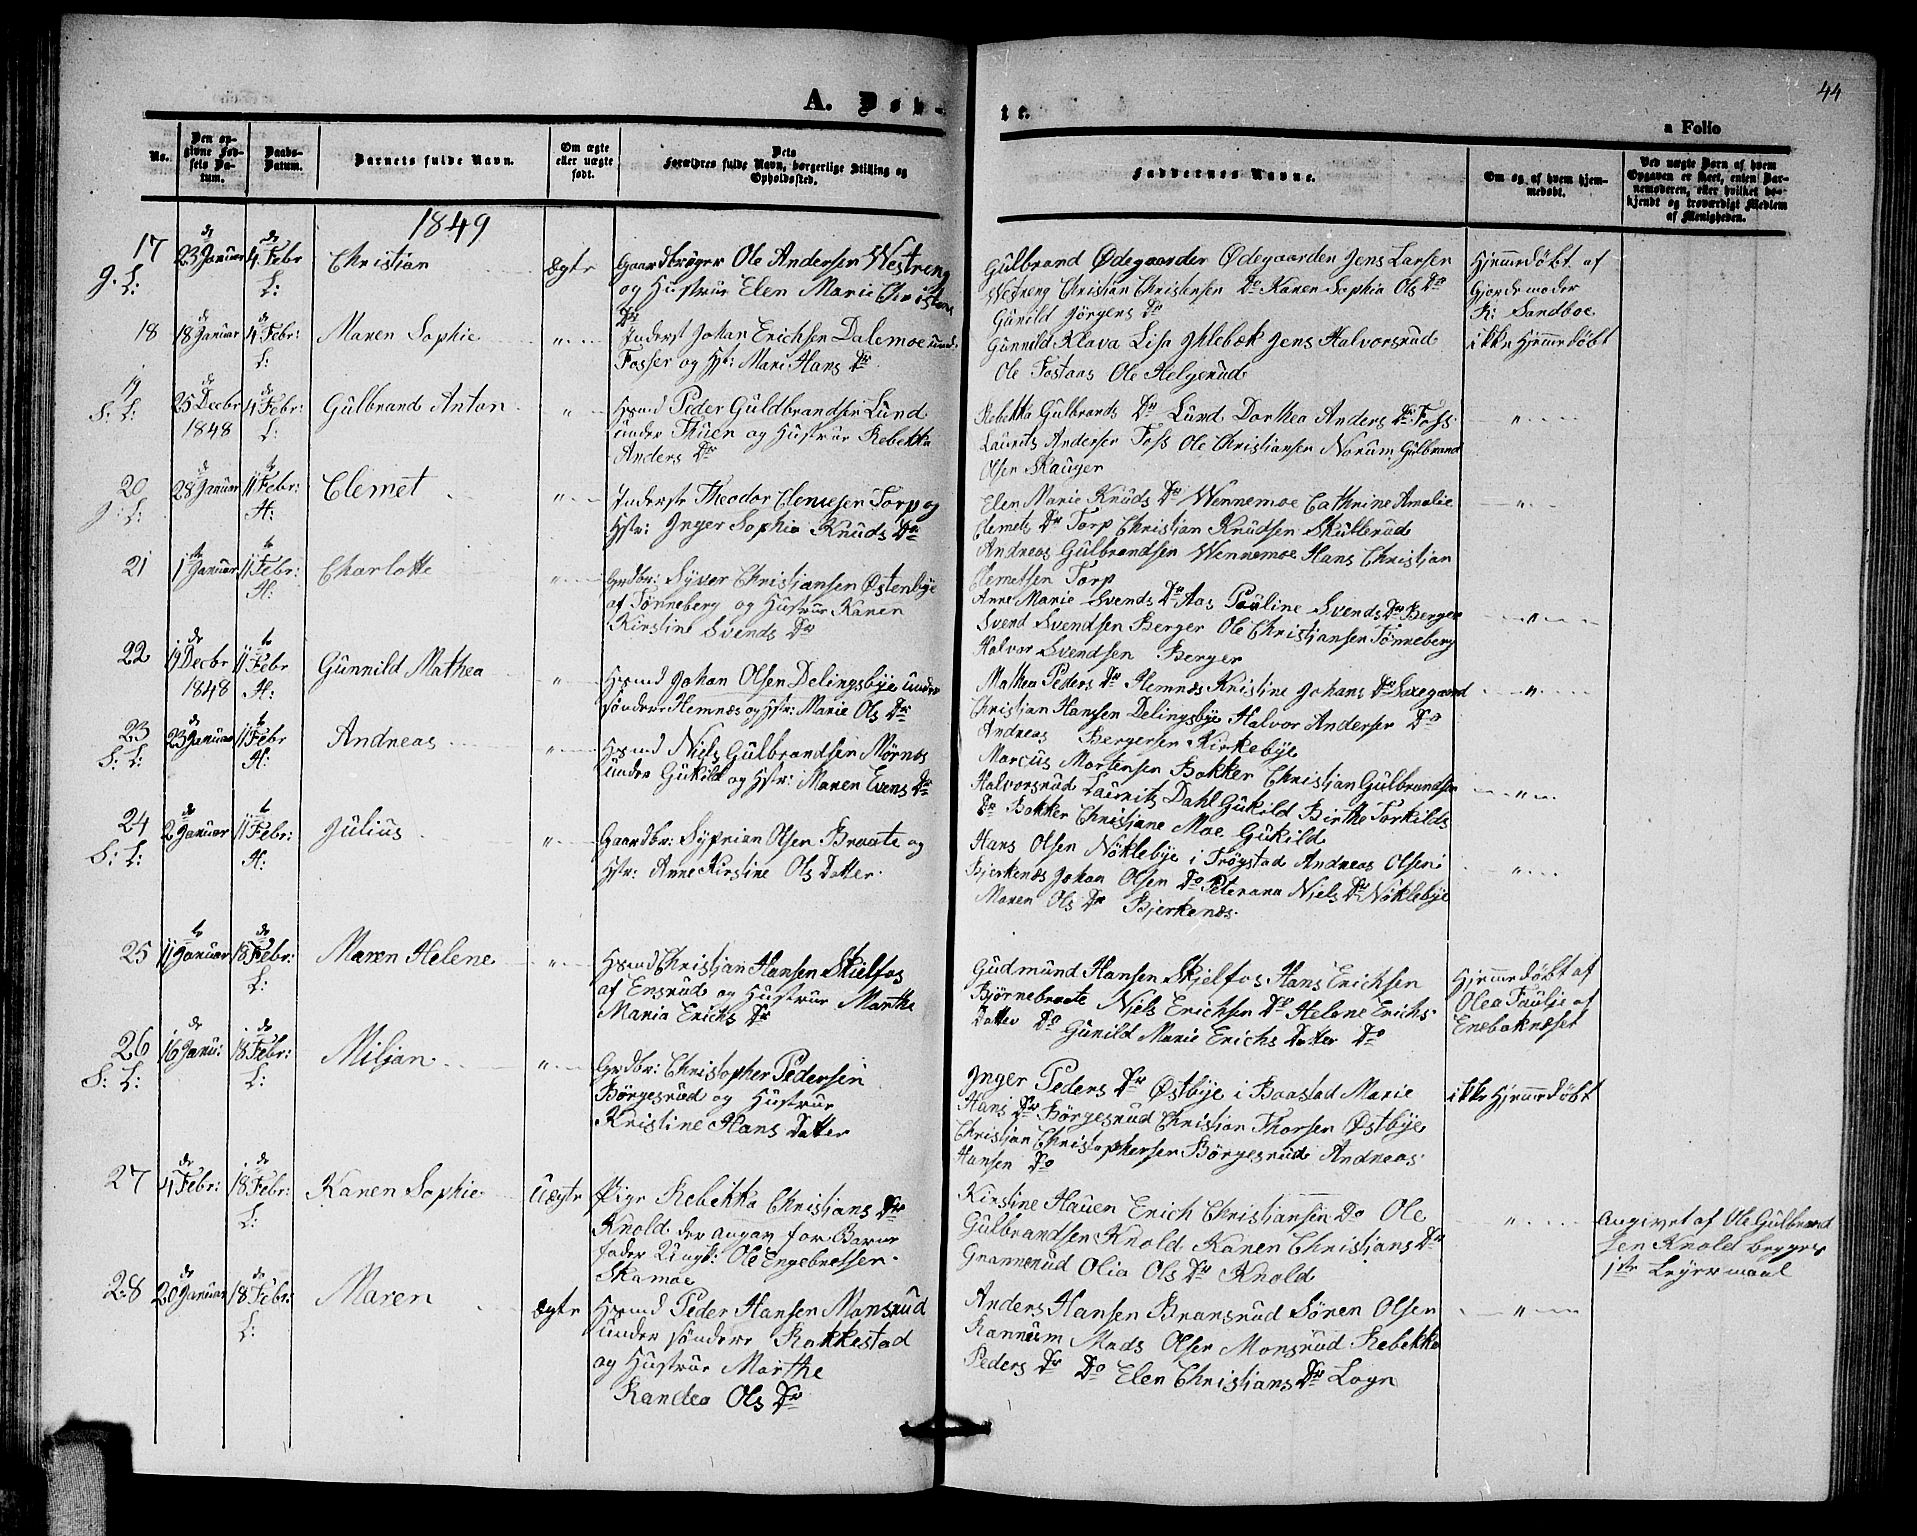 44
A. Døb-
te.
a Folio
No.
Den op-
givne Fød-
sels Da-
tum.
Daabs-
Datum.
Barnets fulde Navn.
Om ægte
eller uægte
født.
Dets
Forældres fulde Navn, borgerlige Stilling og
Opholdssted.
Faddernes Navne.
Om og af hvem hjem-
medøbt.
Ved uægte Barn af hvem
Opgaven er skeet, enten Bar-
nemoderen, eller hvilket be-
kjendt og troværdigt Medlem
af Menigheden.
1849
17 23 Januar 4 Febr Christian Ægte Gaardbruger Ole Andersen Westreng
og Hustrue Elen Marie Christens
Dr
Gulbrand Ødegaarden Ødegaarden Jens Larsen
Westreng Christian Christensen Do Karen Sophia Ols Dr
Gunild Jørgens Dr
Hjemedøbt af
Gjordemoder
K: Sandboe
18 18 Januar 4 Febr: Maren Sophie " Inderst Johan Erichsen Dalemoe
Fosser og Hst: Mari Hans Dr
Gunnild Klava Lisa Ihlebæk Jens Halvorsrud
Ole Fostaas Ole Helgerud
ikke Hjemedøbt
19 25 Decbr 1848 4 Febr: Gulbrand Anton " Hsmd Peder Guldbrandsen Lund
under Thuen og Hustrue Rebekka
Anders Dr
Rebekka Gulbrands Dr Lund Dorthea Anders Dr Foss
Laurits Andersen Foss Ole Christiansen Norum Gulbrand
Olsen Skauger
"
20 28 Januar 11 Febr: Clemet " Inderste Theodor Clemesen Torp og
Hstr: Inger Sophia Knuds Dr
Elen Marie Knuds Dr Wennemoe Cathrine Amalie
Clemets Dr Torp Christian Knudsen Skullerud
Andreas Gulbrandsen Wennemoe Hans Christian
Clemetsen Torp
"
21 1 Januar 11 Febr: Charlotte " Grdbr: Syver Christjansen Østenbye
af Tønneberg og Hustrue Karen
Kirstine Svends Dr
Anne Marie Svends Dr Aas Pauline Svends Dr Berger
Svend Svendsen Berger Ole Christjansen Tønneberg
Halvor Svendsen Berger
"
22 19 Decbr 1848 11 Febr Gunnild Mathea " Hsmd Johan Olsen Delingsbye under
søndere Hemnæs og Hstr: Marie Ols Dr
Mathea Peders Dr Hemnæs Kristine Johans Dr Saxegaard
Christjan Hansen Delingsbye Halvor Andersen Do
Andreas Bergersen Kirkebye
"
23 23 Januar 11 Febr Andreas " Hsmd Niels Gulbrandsen Mørnes
under Gukild og Hstr: Maren Evens Dr
Marcus Mortensen Bakker Christjan Gulbrandsen
Halvorsrud Laurits Dahl Gukild Birthe Torkilds
Dr Bakker Christjane Moe Gukild
"
24 2 Januar 11 Febr: Julius " Gaardbr: Syprian Olsen Braate og
Hstr: Anne Kirstine Ols Datter
Hans Olsen Nøklebye i Trøgstad Andreas Olsen
Bjerkenæs Johan Olsen Do Peterana Niels Dr Nøklebye
Maren Ols Dr Bjerkenæs
"
25 11 Januar 18 Febr: Maren Helene " Hsmd Christjan Hansen Skjelfos
af Ensrud og Hustrue Marthe
Maria Erichs Dr
Gudmund Hansen Skjelfos Hans Erichsen
Bjørnebraate Niels Erichsen Do Helene Erichs
Datter Do Gunild Marie Erichs Datter Do
Hjemedøbt af
Olea Paulje af
Enebaknæset
26 16 Janu: 18 Febr: Miljan " Grdbr: Christopher Pedersen
Børgesrud og Hustrue
Kristine Hans Datter
Inger Peders Dr Østbye i Baastad Marie
Hans Dr Børgesrud Christian Thorsen Østbye
Christjan Christophersen Børgesrud Andreas
Hansen Do
ikke Hjemedøbt
27 4 Febr: 18 Febr: Karen Sophie Uægte Pige Rebekka Christjans Dr
Knold der angav for Barne
fader Ungk: Ole Engebretsen
Skamoe
Kirstine Hauen Erich Christiansen Do Ole
Gulbrandsen Knold Karen Christjans Dr
Grannerud Olia Ols Dr Knold
"
angivet af Ole Gulbrand
sen Knold begges
1ste Leyermaal
28 20 Januar 18 Febr: Maren Ægte Hsmd Peder Hansen Monsrud
under søndere Rakkestad
og Hustrue Marthe
Randea Ols Dr
Anders Hansen Bransrud Søren Olsen
Rannum Mads Olsen Monsrud Rebekka
Peders Dr Do Elen Christjans Dr Logn
"